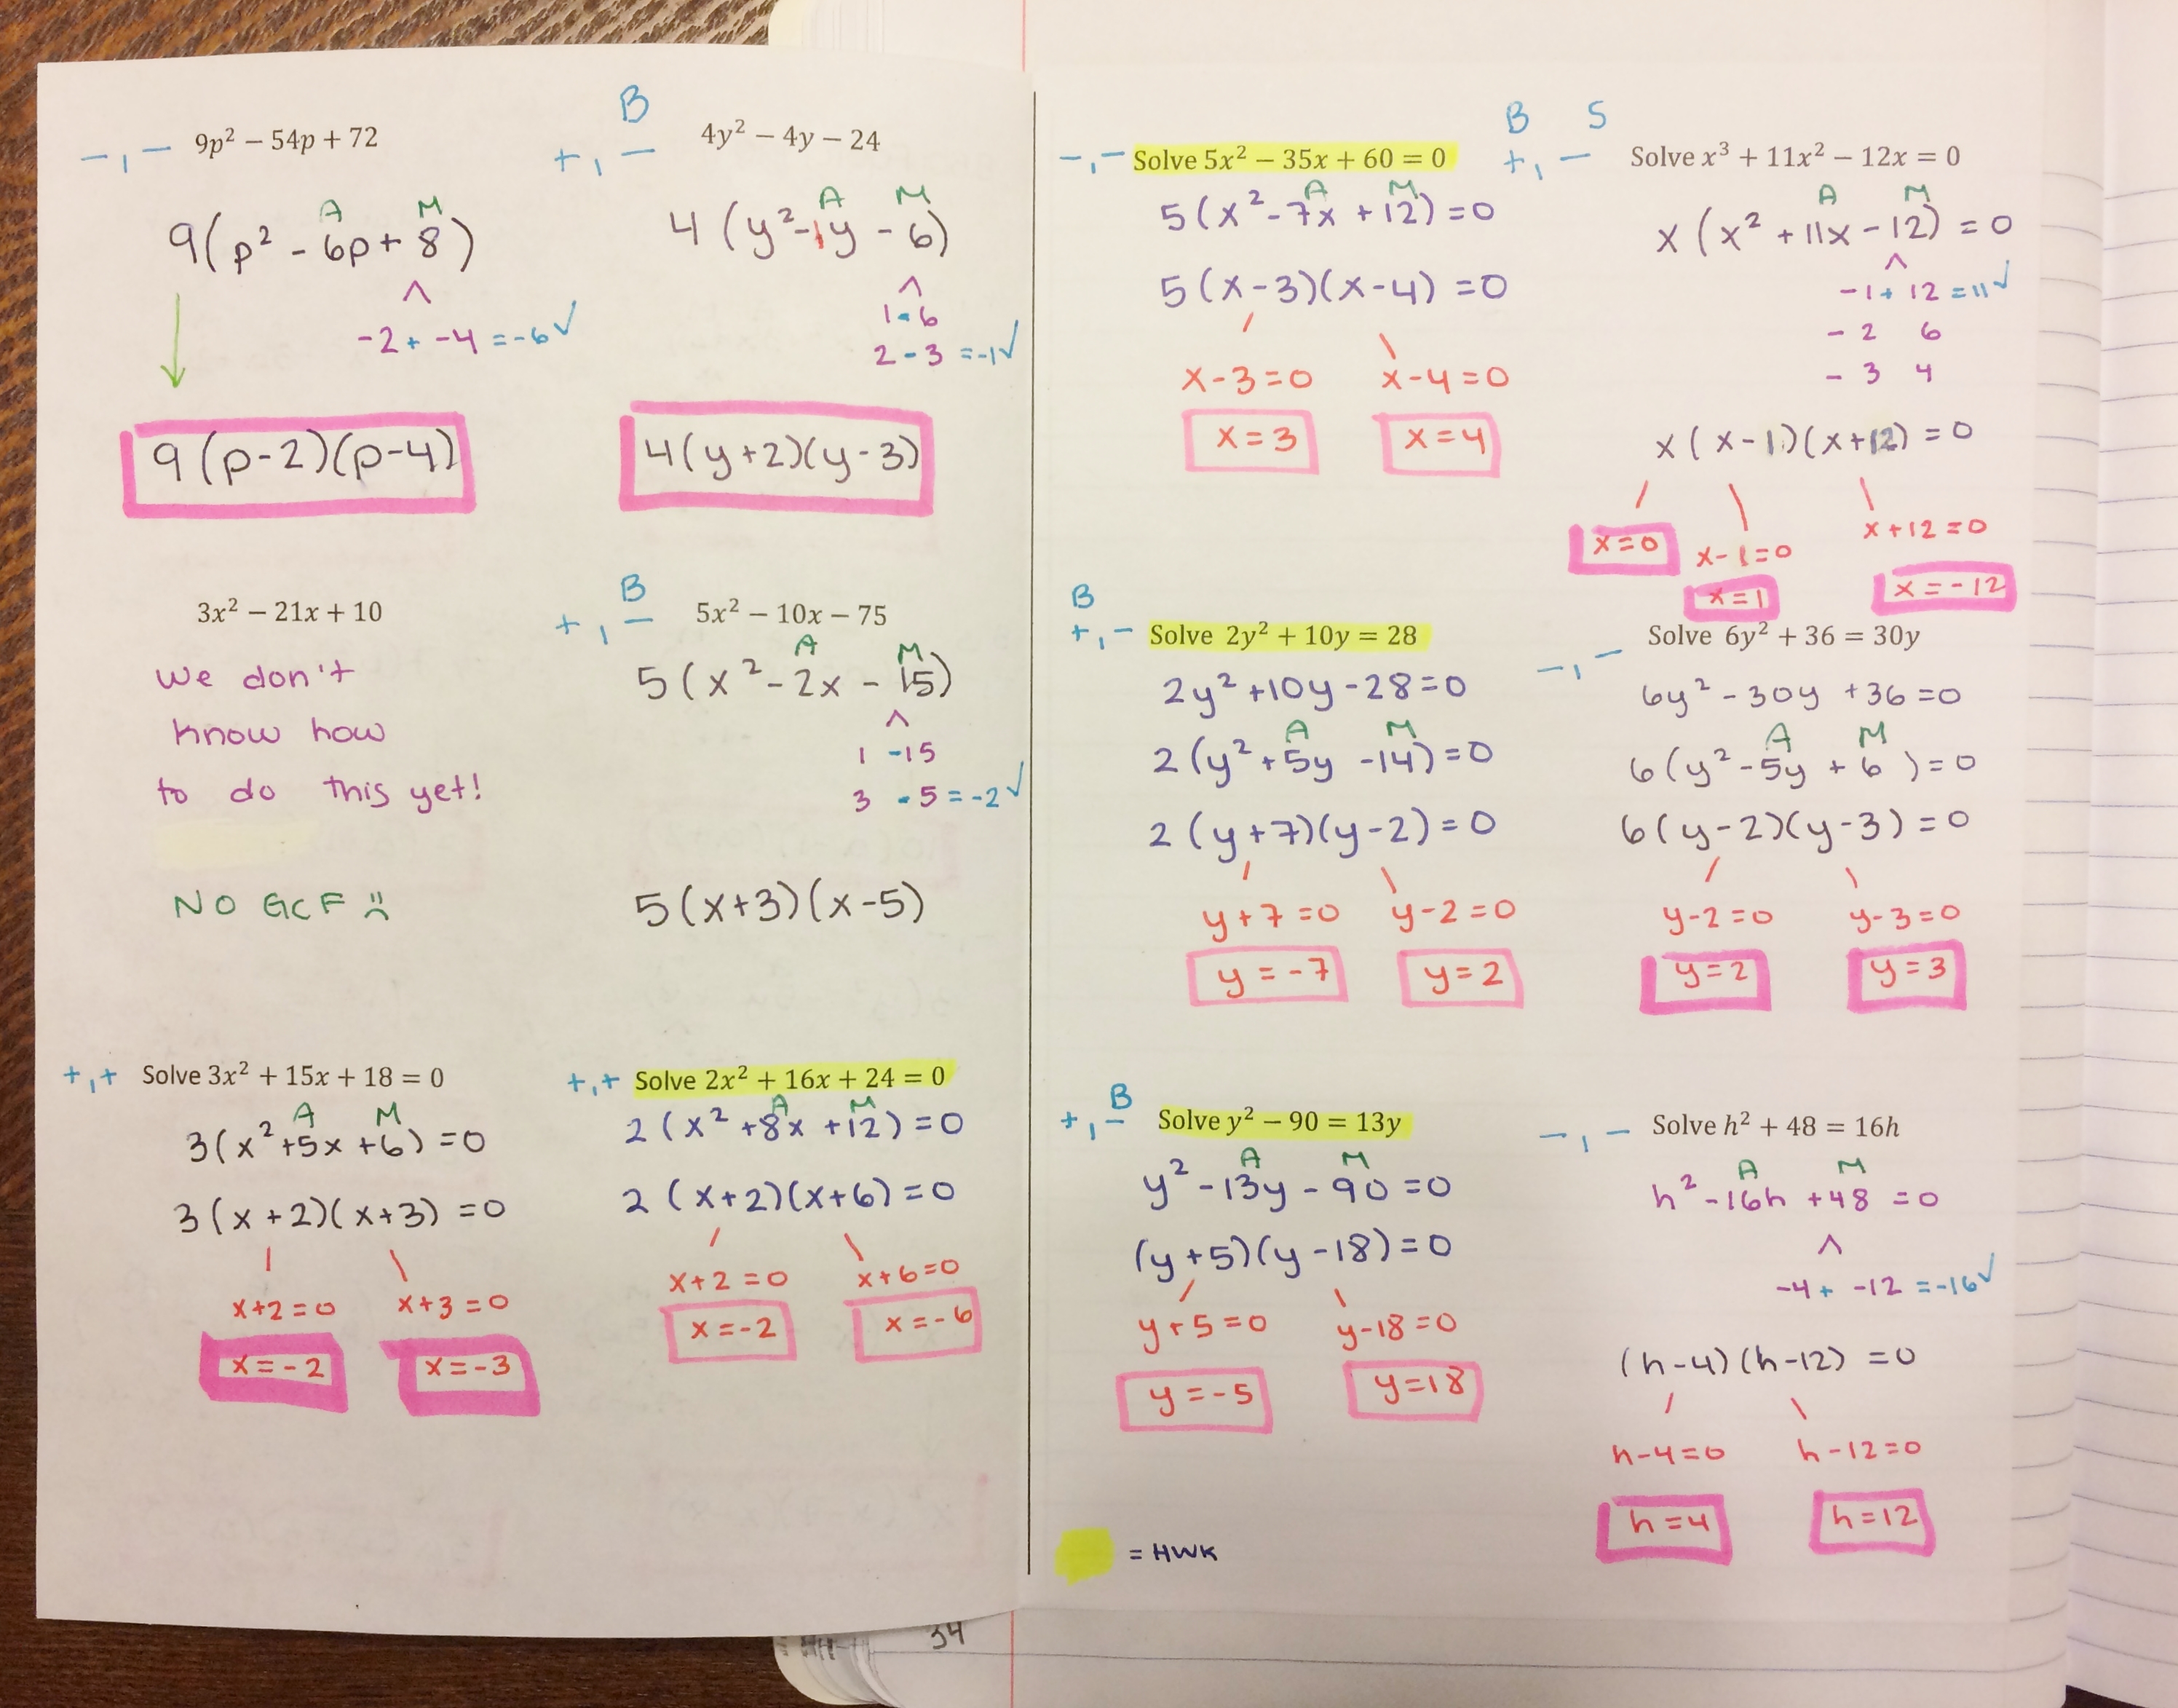 -,- 9p² − 54p + 72
A M
9(p² - 6p + 8)
^
-2 + -4 = -6 ✓
9(p-2)(p-4)
B
+,- 4y² − 4y − 24
A M
4(y²-1y - 6)
^
1 - 6
2 - 3 = -1 ✓
4(y+2)(y-3)
3x² − 21x + 10
We don't
know how
to do this yet!
NO GCF ☹
B
+,- 5x² − 10x − 75
A M
5(x² - 2x - 15)
^
1 -15
3 -5 = -2 ✓
5(x+3)(x-5)
+,+ Solve 3x² + 15x + 18 = 0
A M
3(x²+5x+6) = 0
3(x+2)(x+3) = 0
x+2=0 x+3=0
x=-2 x=-3
+,+ Solve 2x² + 16x + 24 = 0
A M
2(x²+8x+12)=0
2(x+2)(x+6)=0
x+2=0 x+6=0
x=-2 x=-6
-,- Solve 5x² − 35x + 60 = 0
A M
5(x²-7x+12)=0
5(x-3)(x-4)=0
x-3=0 x-4=0
x=3 x=4
B S
+,- Solve x³ + 11x² − 12x = 0
A M
x(x²+11x-12)=0
^
-1+ 12 =11 ✓
- 2 6
- 3 4
x(x-1)(x+12)=0
x=0 x-1=0 x+12=0
x=1 x=-12
B
+,- Solve 2y² + 10y = 28
2y²+10y-28=0
A M
2(y²+5y-14)=0
2(y+7)(y-2)=0
y+7=0 y-2=0
y=-7 y=2
-,- Solve 6y² + 36 = 30y
6y²-30y+36=0
A M
6(y²-5y+6)=0
6(y-2)(y-3)=0
y-2=0 y-3=0
y=2 y=3
B
+,- Solve y² − 90 = 13y
A M
y²-13y-90=0
(y+5)(y-18)=0
y+5=0 y-18=0
y=-5 y=18
-,- Solve h² + 48 = 16h
A M
h²-16h+48=0
^
-4+ -12 =-16 ✓
(h-4)(h-12)=0
h-4=0 h-12=0
h=4 h=12
= HWK
34